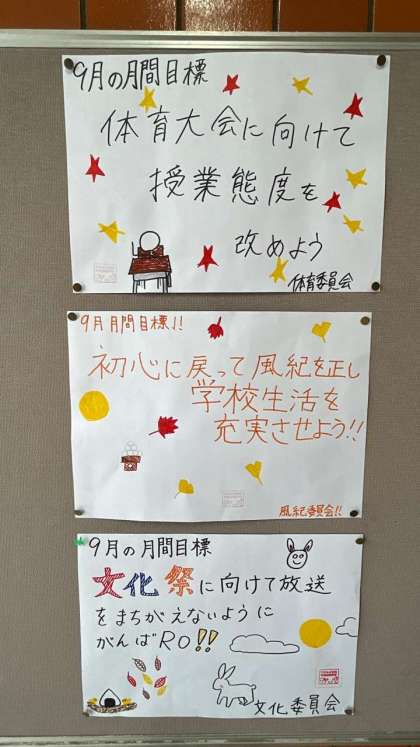 9月の月間目標
体育大会に向けて
授業態度を
改めよう
体育委員会
9月月間目標!!
初心に戻って風紀を正し
学校生活を
充実させよう!!
風紀委員会!!
9月の月間目標
文化祭に向けて放送
をまちがえないように
がんばRO!!
文化委員会